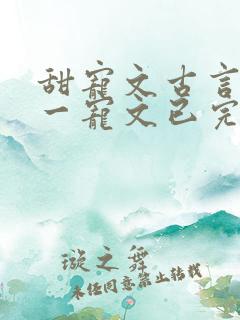 甜寵文古言
一寵文已完
璇之舞
未经同意禁止转载